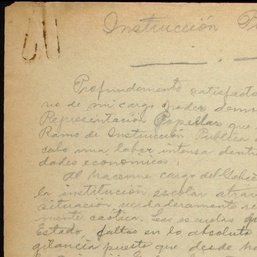 Instrucción P
Profundamente satisfacto
no de mi cargo poder demo
Representación Popular que
Ramo de Instrucción Pública
cabo una labor intensa dent
dades económicas.
Al hacerme cargo del Gobie
la institución escolar atrav
situación verdaderamente de
mente caótica. Las escuelas
Estado, faltas en lo absoluto
puesto que desde h